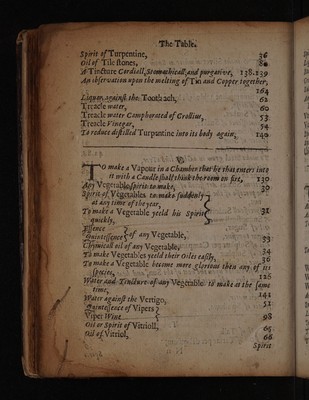 The Table.
Spirit of Turpentine, 36
Oil of Tile stones, 80
A Tincture Cordiall, Stomachicall, and purgative, 138.139
An observation upon the melting of Tin and Copper together,
164
Liquor against the Tooth ach, 62
Treacle water, 60
Treacle water Camphorated of Crollius, 53
Treacle Vinegar, 54
To reduce distilled Turpuntine into its body again, 140
V
To make a Vapour in a Chamber that he that enters into
it with a Candle shall think the room on fire, 130
Any Vegetable spirit to make, 30
Spirit of Vegetables to make suddenly
at any time of the year,
To make a Vegetable yeeld his Spirit 31
quickly,
Essence
Quintessence of any Vegetable, 33
Chymicall oil of any Vegetable, 34
To make Vegetables yeeld their Oiles easily, 36
To make a Vegetable become more glorious then any of its
species, 126
Water and Tincture of any Vegetable to make at the same
time, 141
Water against the Vertigo, 51
Quintessence of Vipers
Viper Wine 98
Oil or Spirit of Vitrioll, 65
Oil of Vitriol, 66
Spirit